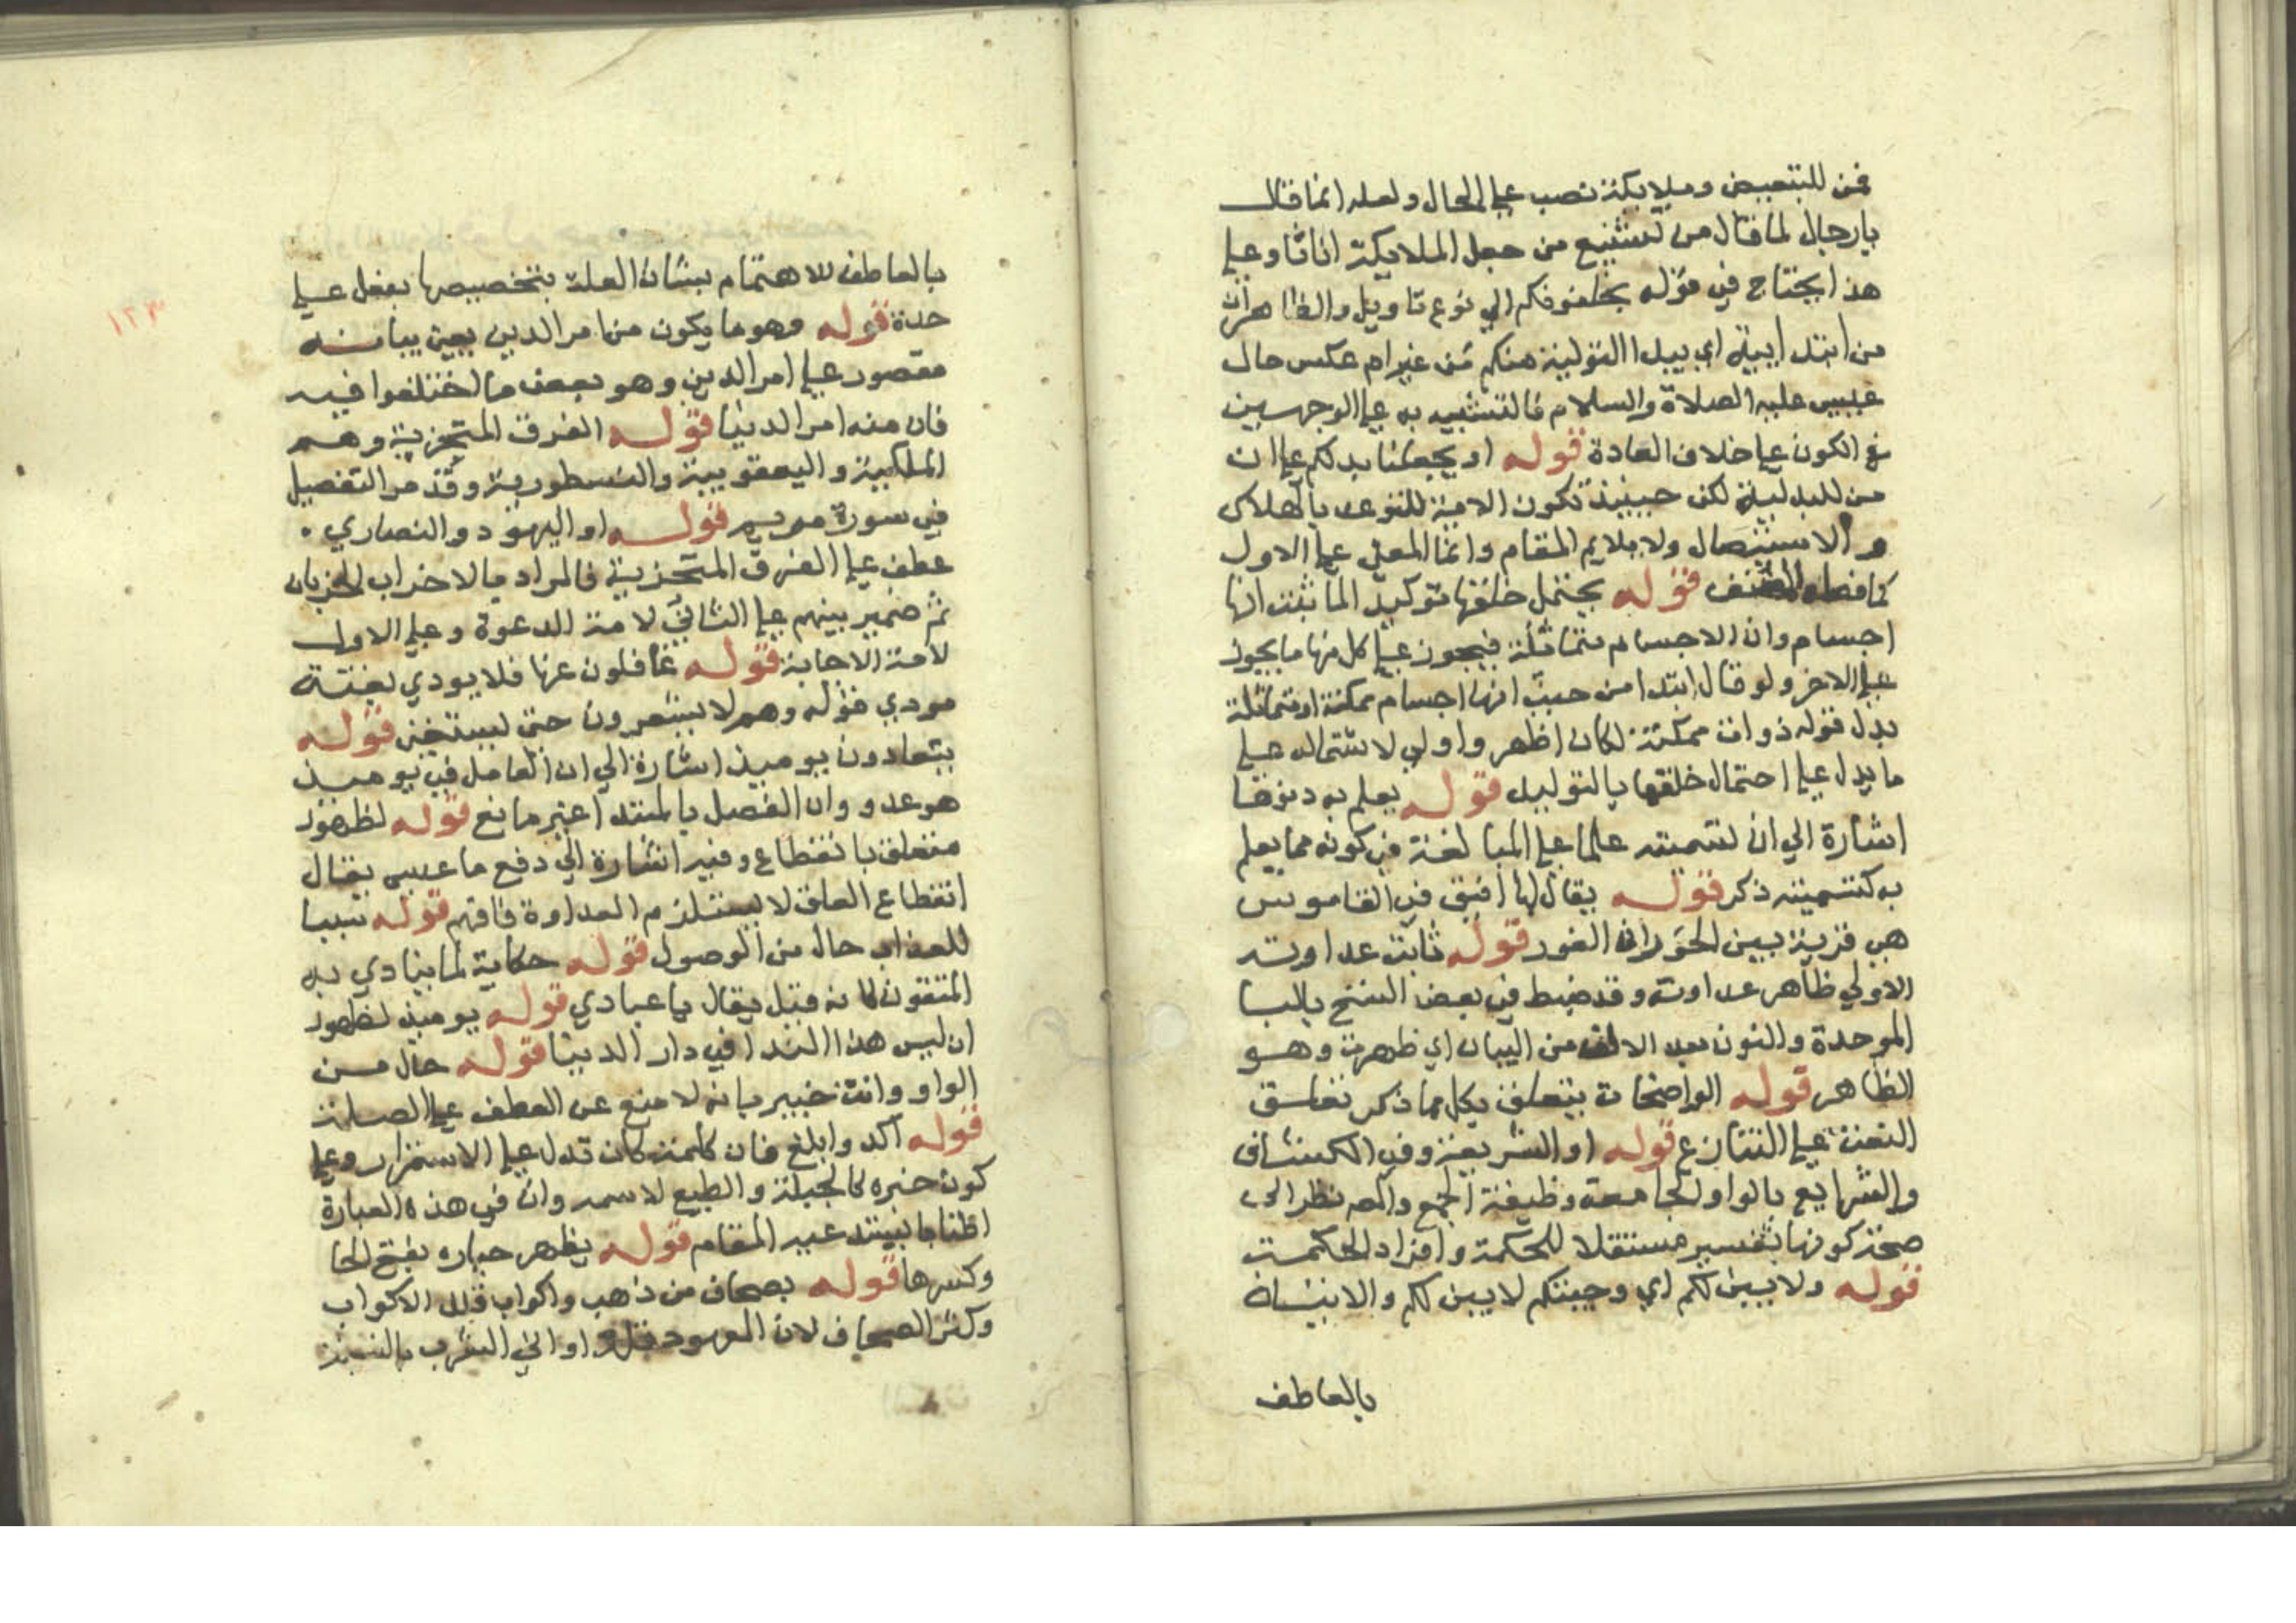 فمن للتبعيض وملايكة نصب علي الحال ولعله انما قال
يارجال لما قال من تشنيع من جعل الملايكة اناثا وعلي
هذا يحتاج في قوله يخلفونكم الي نوع تاويل والظاهران
من ابتدايية اي يبدا التولية منكم من غير ام عكس حال
عيسى عليه الصلاة والسلام فالتشبيه به علي الوجهين
في الكون علي خلاف العادة قوله او يجعلنا بدلكم علي ان
من للبدلية لكن حينيذ تكون الامية للتوعد بالهلاك
والاستيصال ولا يلايم المقام وانما المعني علي الاول
كما فصله المصنف قوله يحتمل خلقها توكيد الما ثبت انها
اجسام وان الاجسام متماثلة فيجوز علي كل منها ما يجوز
علي الاخر ولو قال ابتدا من حيث انها اجسام ممكنة او متماثلة
بدل قوله ذوات ممكنة لكان اظهر واولي لاشتماله علي
ما يدل علي احتمال خلقها بالتوليد قوله يعلم به دنوها
اشارة الي ان تسميته علما علي المبالغة في كونه مما يعلم
به كتسميته ذكر قوله يقال لها افيق في القاموس
هي قرية بين الحوران الغور قوله ثابت عداوته
الاولي ظاهر عداوته وقد ضبط في بعض النسخ بالبا
الموحدة والنون بعد الالف من البيان اي ظهرت وهو
الظاهر قوله الواضحات يتعلق بكل مما ذكر تعلق
النعت علي التنازع قوله او الشريعة وفي الكشاف
والشرايع بالواو الجامعة وظيفة الجمع والمص نظر الي
صحة كونها بتفسير مستقلا للحكمة وافراد الحكمة
قوله ولابين لكم اي وجيتكم لابين لكم والاتيان
بالعاطف
بالعاطف للاهتمام ببشان العلة بتخصيصها بفعل علي
حدة قوله وهو ما يكون من امر الدين يعين بيانه
مقصور علي امر الدين وهو بعض ما اختلفوا فيه
فان منه امر الدنيا قوله الفرق المتحزبة وهم
الملكية واليعقوبية والنسطورية وقد مر التفصيل
في سورة مريم قوله او اليهود والنصاري .
عطف علي الفرق المتحزبة فالمراد بالاحزاب الحزبان
ثم ضمير بينهم علي الثاني لامة الدعوة وعلي الاول
لامة الاجابة قوله غافلون عنها فلا يودي بغتة
مودي قوله وهم لا يشعرون حتى ليستغني قوله
يتعادون يوميذ اشارة الي ان العامل في يوميذ
هو عدو وان الفصل بالمبتدا غير مانع قوله لظهور
متعلق بانقطاع وفيه اشارة الي دفع ما عسى يقال
انقطاع العلق لا يستلزم العداوة فافهم قوله سببا
للعذاب حال من الوصول قوله حكاية لما ينادي به
المتقون لانه قبل يقال يا عبادي قوله يوميذ لظهور
ان ليس هذا الندا في دار الدنيا قوله حال من
الواو وانت خبير بانه لا منع عن العطف علي الصلة
قوله آكد وابلغ فان كلمة كان تدل علي الاستمرار وعلي
كون خبره كالجبلة والطبع لاسمه وان في هذه العبارة
اطنابا يستدعيه المقام قوله يظهر حباره بفتح الحا
وكسرها قوله بصحاف من ذهب واكواب قلل الاكواب
وكثر الصحاف لان المعهود قلة اواني الشرب بالنسبة
١٢٣